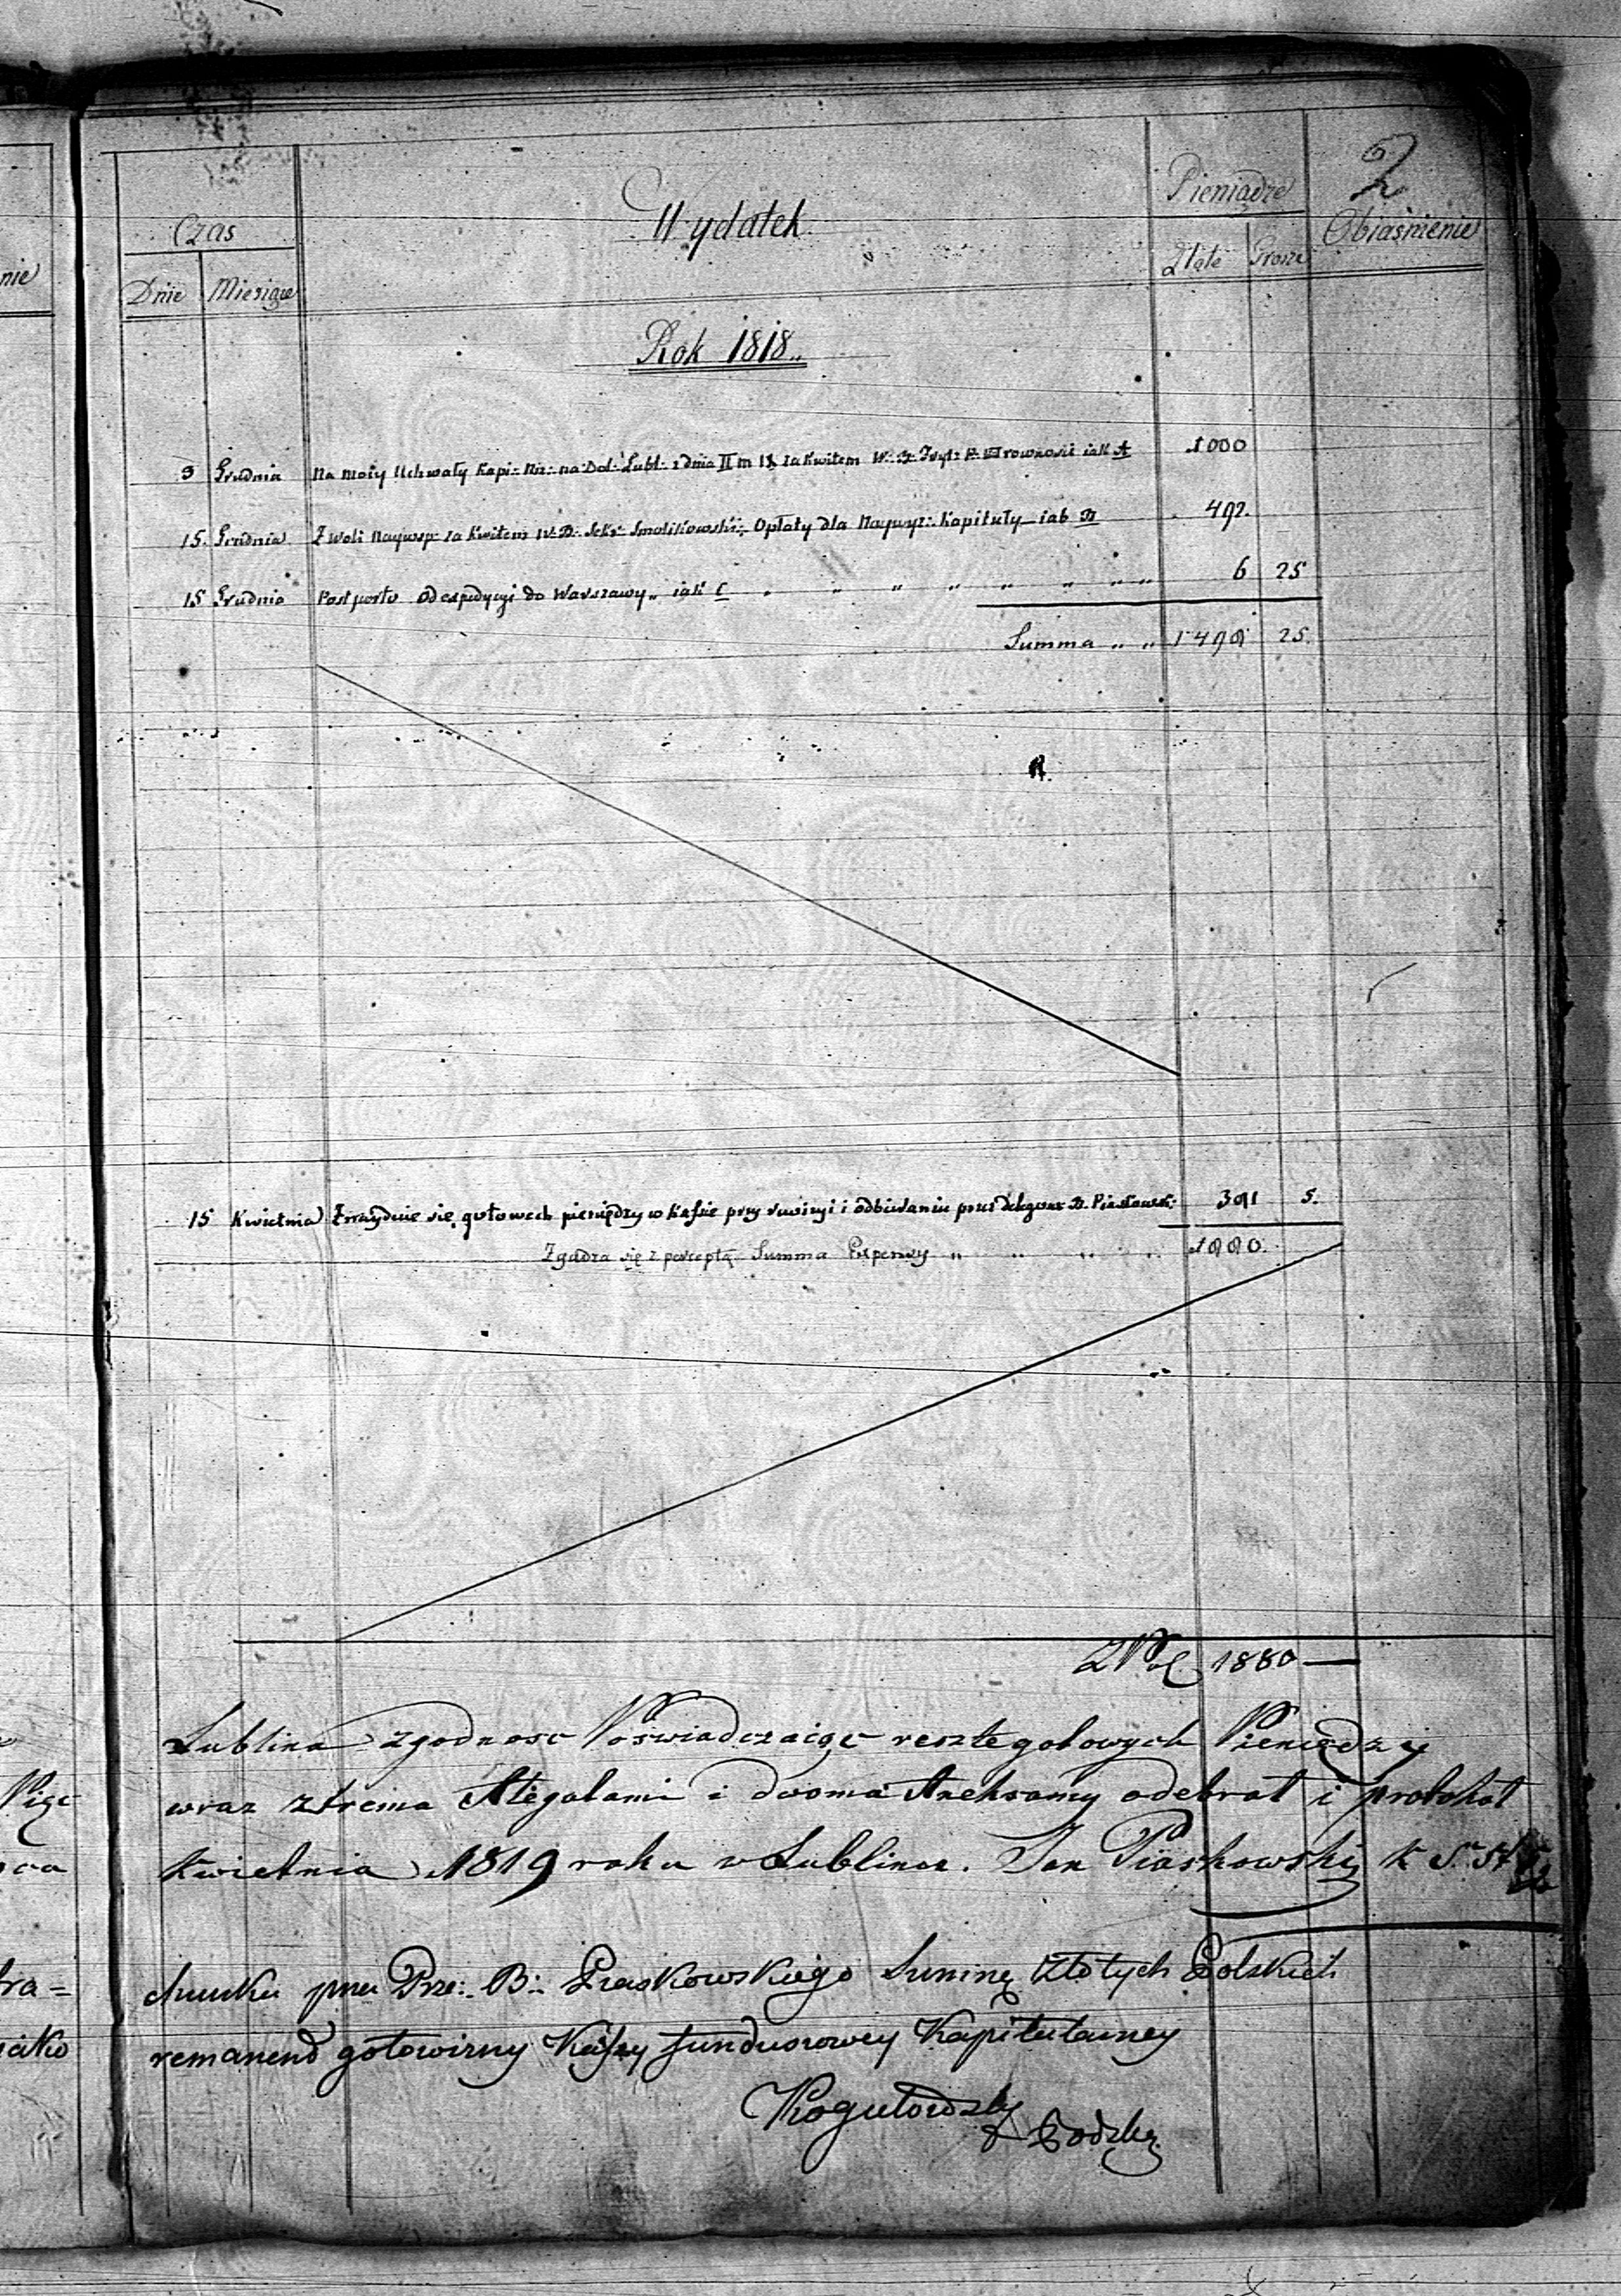 2
Czas
Wydatek
Pieniądze
Obiaśnienie
Dnie Miesiące
Złote Grosze
Rok 1818„
9 Grudnia Na mocy Uchwały Kapi: Niż: na Dol: Lubl: z dnia II m IX za kwitem W: B: iak A 1000
15. Grudnia Z woli Naywsp: za kwitem W: B: Sekr: Smolikowski: Opłaty dla Naywyż: Kapituły iak B 492.
15 Grudnia Post porto od expedycyi do Warszawy„ iak C „ „ „ „ „ „ „ „ 6 25
Summa „ „ 1498 25.
15 Kwietnia Znayduie się gotowech pieniędzy w Kassie przy rewizyi i odbieraniu przez Delegow: B. Piaskowski: 381 5.
Zgadza się z perceptą Summa Expensy „ „ „ „ 1880.
ZPol 1880 —
nie
Lublina zgodnosc Poswiadczaiąc resztę gotowych Pieniędzy
wraz z trema Allegatami i dwoma Anexamy odebrał i protokoł
Kwietnia 1819 roku w Lublinie. Jan Piaskowski K S. St
Więc
dra=
iako
chunku przez Prze: B: Piaskowskiego Summę Złotych Polskich
remanend gotowizny Kassy funduszowey Kapitularney